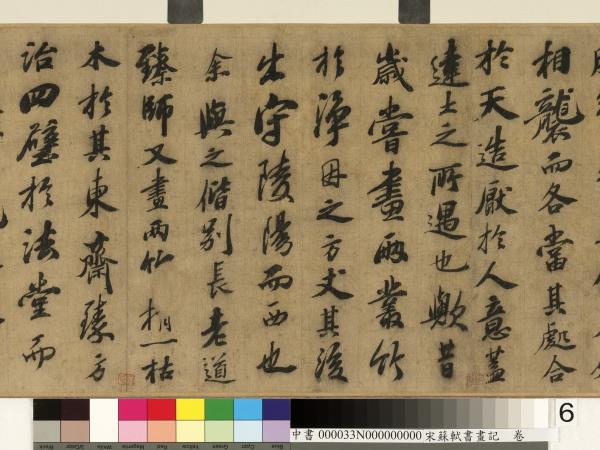 相襲而各當其處合
於天造厭於人意蓋
達士之所遇也歟昔
歲嘗畫兩叢竹
於淨因之方丈其後
出守陵陽而西也
余與之偕別長老道
臻師又畫兩竹梢一枯
木於其東齋臻方
治四壁於法堂而
6
中書 000033N000000000 宋蘇軾書畫記 卷
Black 3/Color White Magenta Red Yellow Green Cyan Blue